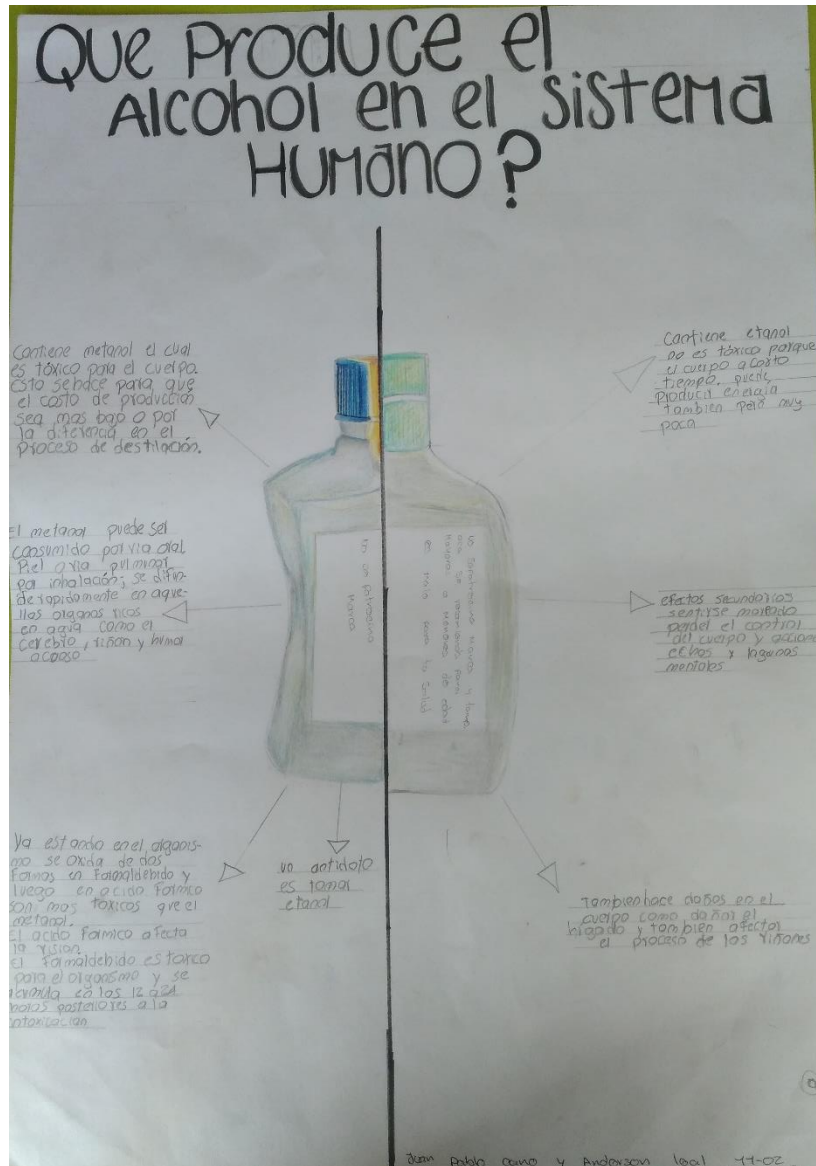 QUE PRODUCE el
Alcohol en el sistema
HUMANO?
Contiene metanol el cual
es tóxico para el cuerpo.
Esto se hace para que
el costo de producción
sea mas bajo o por
la diferencia en el
proceso de destilación.
El metanol puede ser
consumido por via oral
Piel o via pulmonar
por inhalación; se difun-
de rapidamente en aque-
llos organos ricos
en agua como el
cerebro, riñon y humor
acuoso
Ya estando en el organis-
mo se oxida de dos
formas en Formaldehido y
luego en acido Formico
son mas toxicos que el
metanol.
El acido Formico afecta
la vision.
El formaldehido es toxico
para el organismo y se
en los 12 a 24
horas posteriores a la
intoxicacion
un antidoto
es tomar
etanol
en un
Marca
es malo para la salud
Contiene etanol
no es tóxico porque
el cuerpo a corto
tiempo. puede
Producir energia
tambien pero muy
poca
efectos secundarios
sentirse mareado
perder el control
del cuerpo y acciones
echas y lagunas
mentales
Tambien hace daños en el
cuerpo como dañar el
higado y tambien afectar
el proceso de los riñones
Juan Pablo cano y Anderson leal 11-02